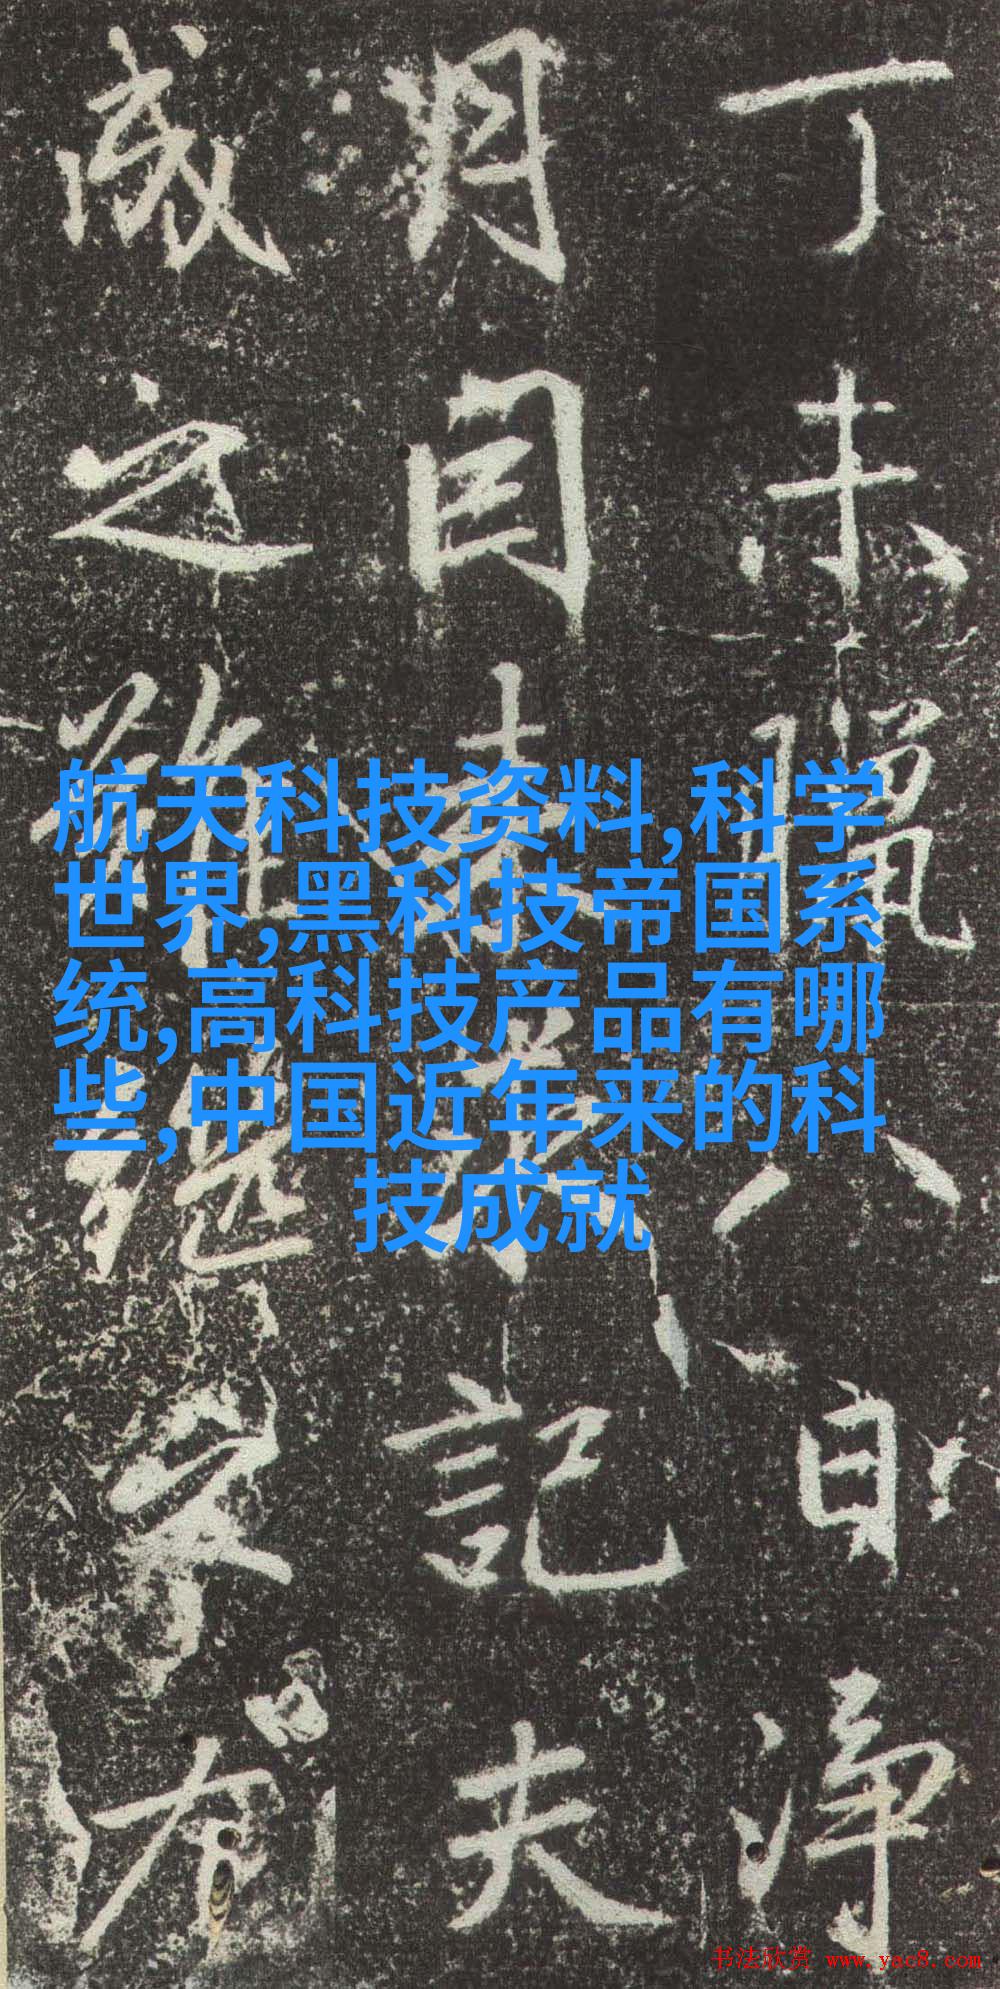 航天科技资料,科学
世界,黑科技帝国系
统,高科技产品有哪
些,中国近年来的科
技成就
丁未臘八日淨
月記夫
成之難繼
书法欣赏 www.yac8.com